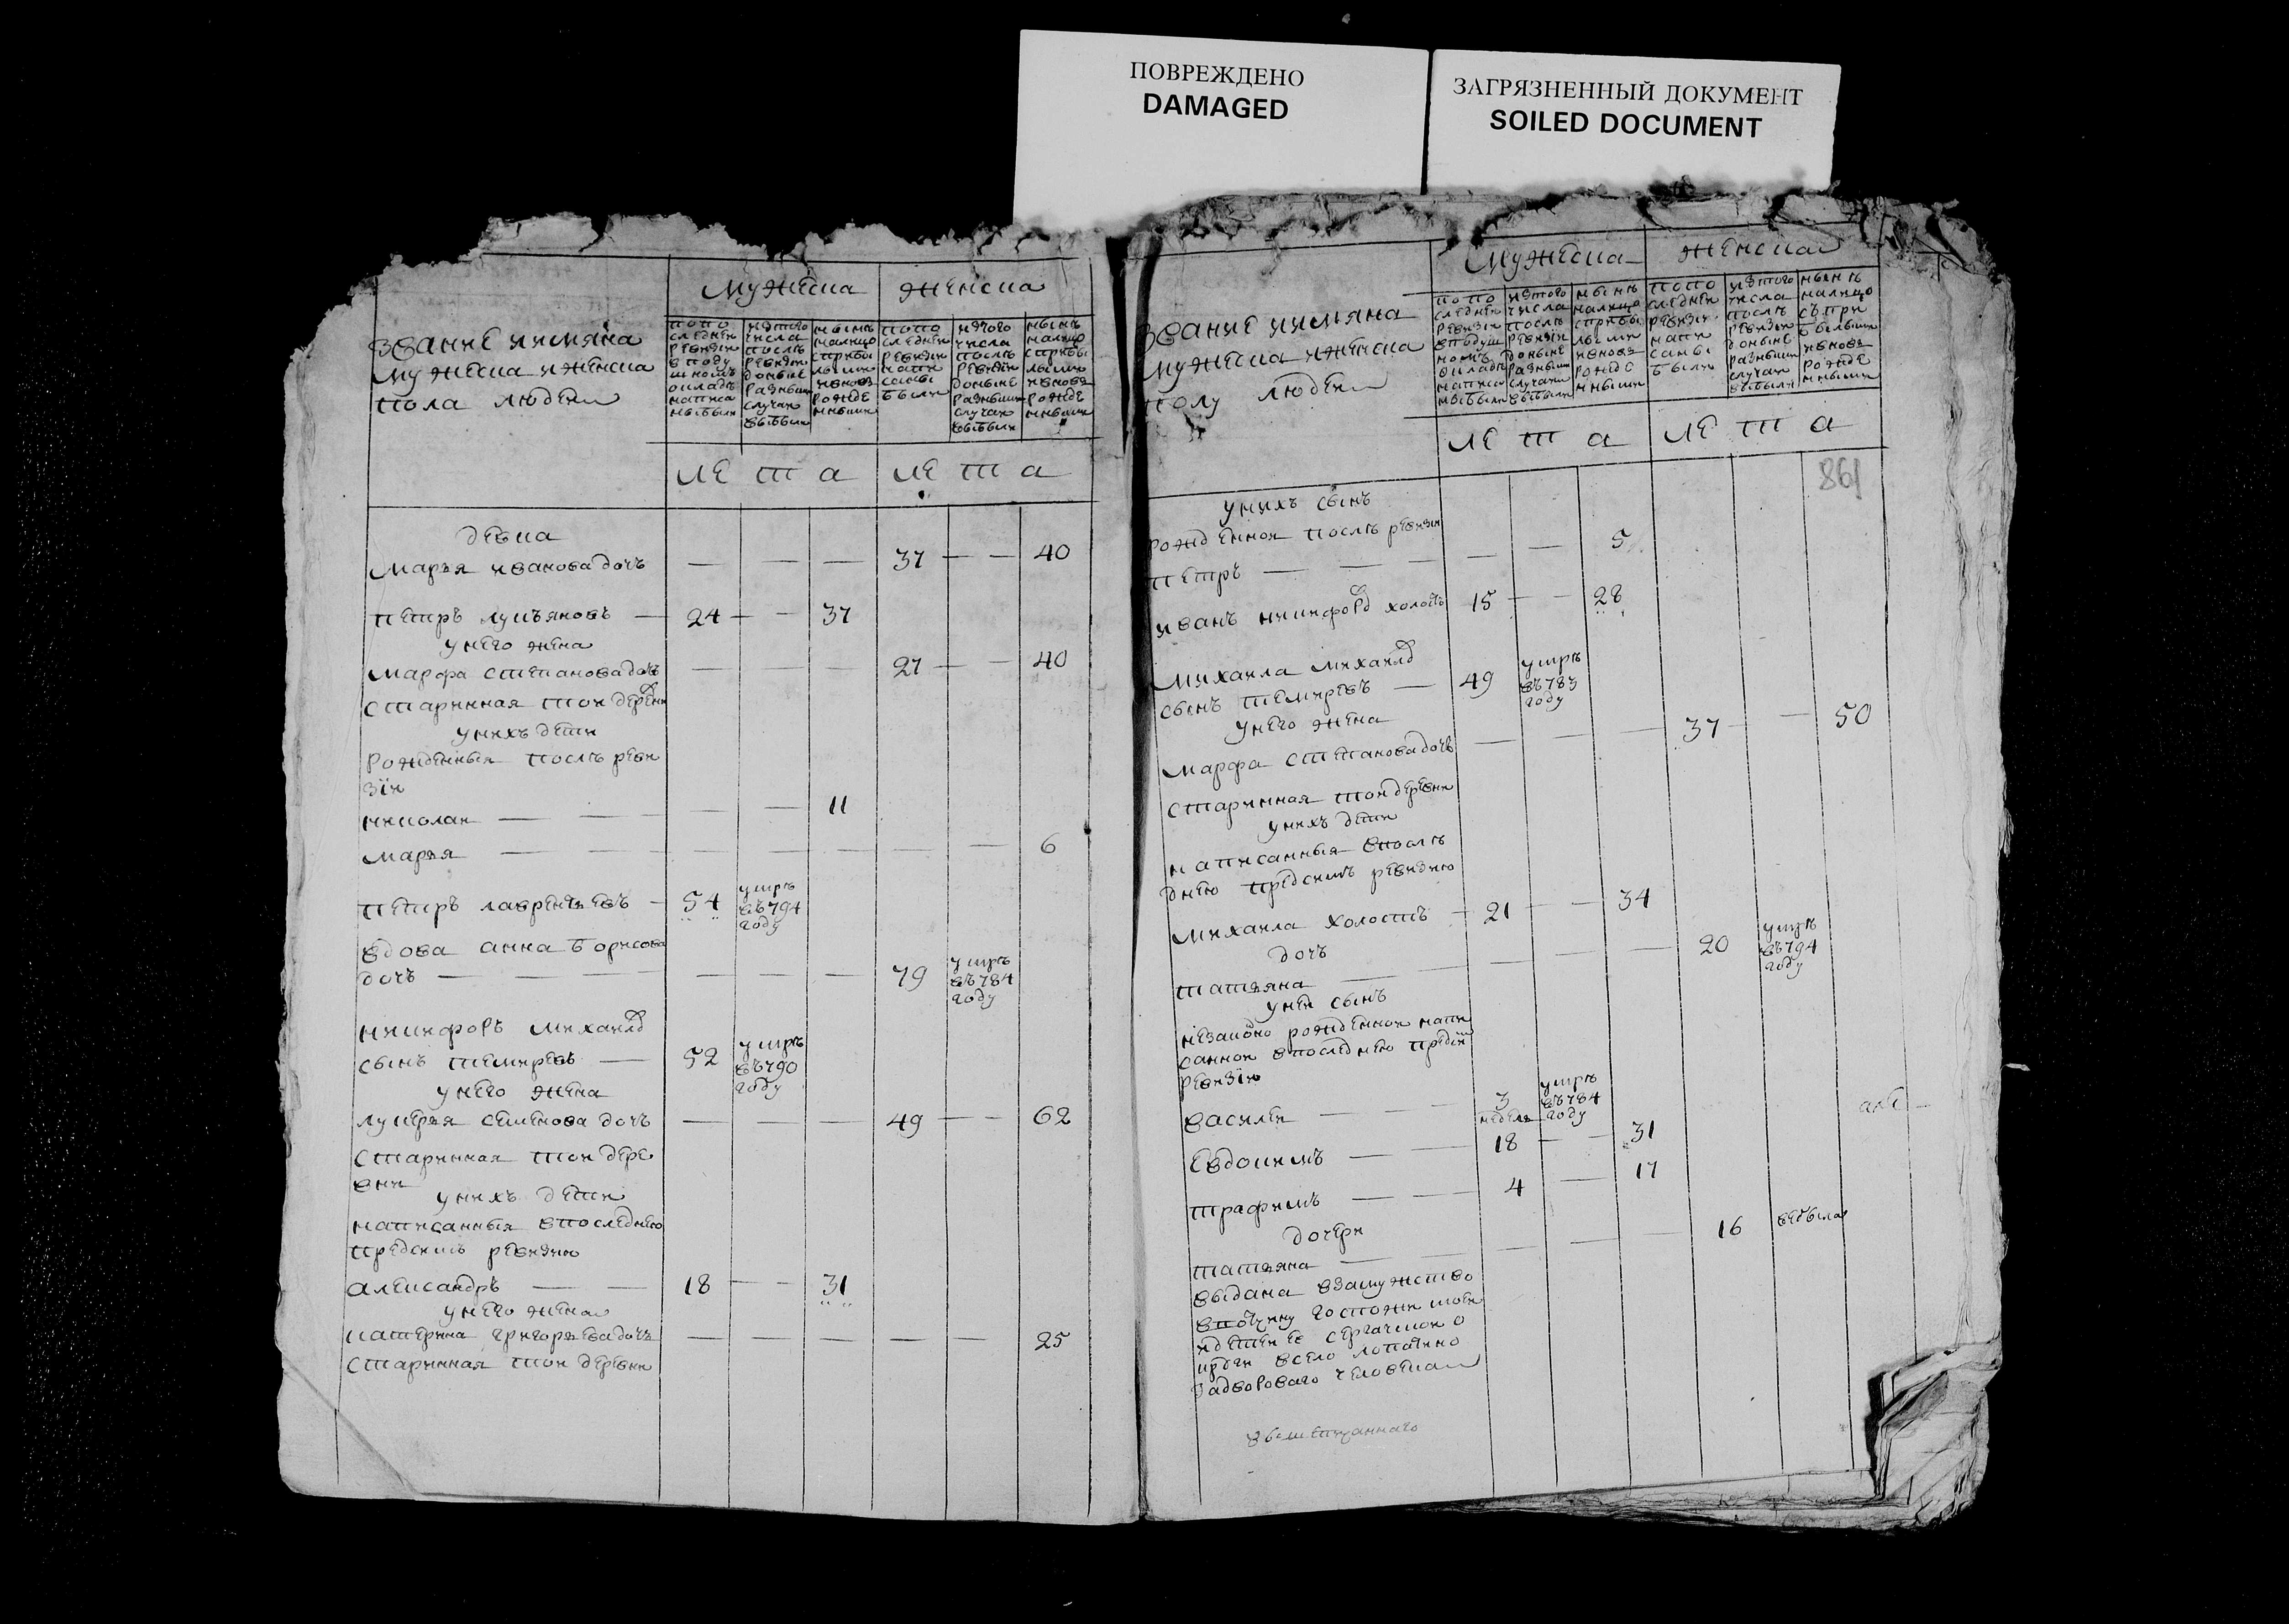 ПОВРЕЖДЕНО
DAMAGED
ЗАГРЯЗНЕННЫЙ ДОКУМЕНТ
SOILED DOCUMENT
звание иимяна
мужеска иженска
пола людеи
мужеска
женска
попо
следнеи
ревизіи
в поду
шномъ
окладѣ
написа
ныбыли
изтого
числа
послѣ
ревизіи
доныне
разными
случаи
выбыли
нынѣ
налицо
сприбы
лыми
ивновь
рожде
нными
попо
следнеи
ревизіи
напи
саны
были
изтого
числа
послѣ
ревизіи
доныне
разными
случаи
выбыли
нынѣ
налицо
сприбы
лыми
ивновь
рожде
нными
ле т а
ле т а
девка
марья иванова дочь — — — 37 — — 40
петръ лукьяновъ — 24 — — 37
унего жена
марфа степанова дочь — — — 27 — — 40
старинная тои деревни
унихъ дети
рожденныя послѣ реви
зіи
николаи — — — — 11
марья — — — — — — — 6
петръ лаврентьевъ — 54 умре въ 794 году
вдова анна борисова
дочь — — — — — — 79 умре въ 784 году
никифоръ михаилов
сынъ темиревъ — 52 умре въ 790 году
унего жена
лукерья семенова дочь — — — 49 — — 62
старинная тои дере
вни
унихъ дети
написанныя впоследнюю
предсимъ ревизию
александръ — — 18 — — 31
унего жена
катерина григорьева дочь — — — — — 25
старинная тои деревни
звание иимяна
мужеска иженска
полу людеи
мужеска
женска
попо
следнеи
ревизіи
вподуш
номъ
окладѣ
написа
ныбыли
изтого
числа
послѣ
ревизіи
доныне
разными
случаи
выбыли
нынѣ
налицо
сприбы
лыми
ивновь
рожде
нными
попо
следнеи
ревизіи
напи
саны
были
изтого
числа
послѣ
ревизіи
доныне
разными
случаи
выбыли
нынѣ
налицо
съпри
былыми
ивновь
рожде
нными
ле т а
ле т а
861
унихъ сынъ
рожденнои послѣ ревизіи
петръ — — — — — 5
иванъ никифоров холостъ 15 — — 28
михаила михаилов
сынъ темиревъ — 49 умре въ 783 году
унего жена
марфа степанова дочь — — — 37 — — 50
старинная тои деревни
унихъ дети
написанныя впослѣ
днею предсимъ ревизию
михаила холостъ — 21 — — 34
дочь
татьяна — — — — 20 умре въ 794 году
унеи сынъ
незаконо рожденнои напи
саннои впоследнею предсим
ревизіи
василеи — — — 3 недели умре въ 784 году
евдокимъ — — 18 — — 31
трафимъ — — 4 — 17
дочери
татьяна — — — — — 16 выбыла
выдана взамужство
вотчину госпожи моеи
идетеи ее сергачскои о
круги всело лопатино
задворового человека